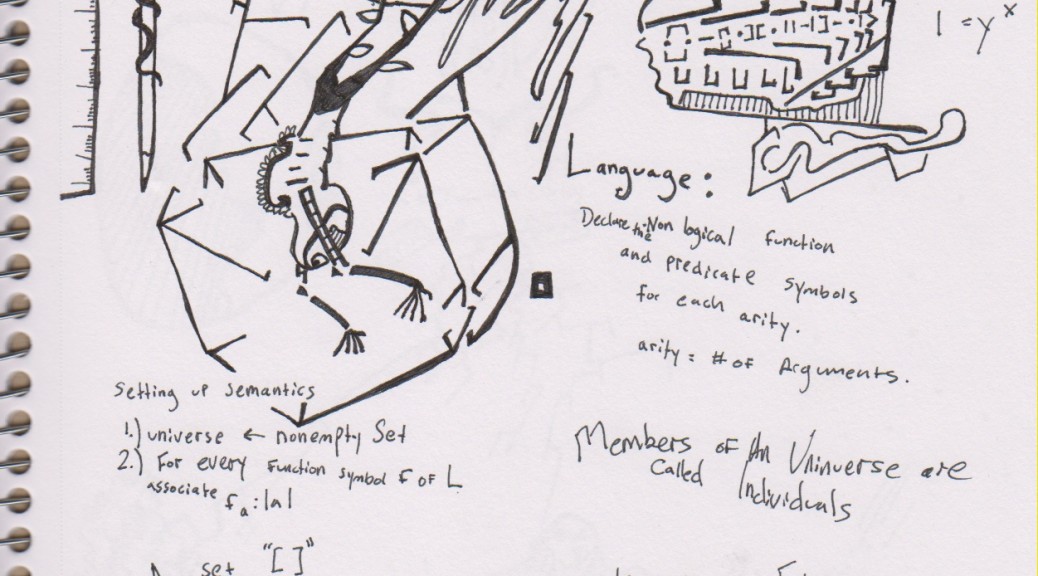 1 = y^x
Language:
Declare the Non logical function
and predicate symbols
for each arity.
arity = # of Arguments.
Setting up Semantics
1.) universe ← nonempty Set
2.) For every Function symbol f of L
associate f_a : |a|
Members of An Uninverse are
Called Individuals
set "[ ]"